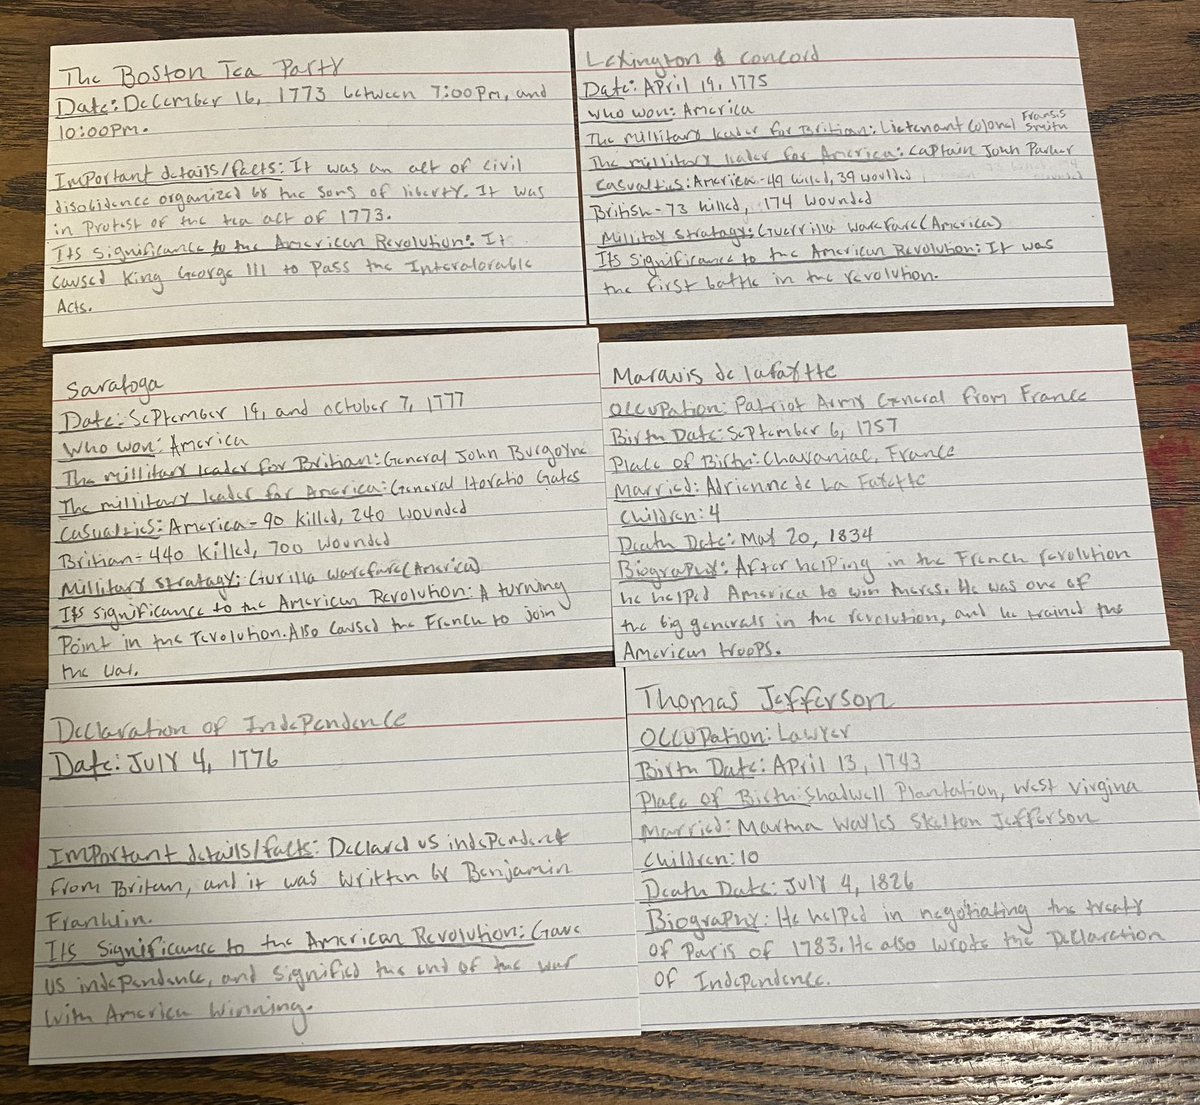 The Boston Tea Party
Date: December 16, 1773 between 7:00pm, and
10:00pm.
Important details/facts: It was an act of civil
disobidence organized by the sons of liberty. It was
in Protest of the tea act of 1773.
Its significance to the American Revolution: It
caused King George III to Pass the Interalorable
Acts.
Lexington & Concord
Date: April 19, 1775
Who won: America
The millitary leader for Britian: Lietenant Colonel Fransis
Smith
The millitary leader for America: Captain John Parker
Casualties: America-49 killed, 39 woulded
British-73 killed, 174 wounded
Millitay stratagy: Guerrilla warefare (America)
Its significance to the American Revolution: It was
the first battle in the revolution.
Saratoga
Date: September 19, and october 7, 1777
Who won: America
The millitary leader for Britian: General John Burgoyne
The millitary leader for America: General Horatio Gates
Casualties: America-90 killed, 240 wounded
Britian-440 killed, 700 wounded
Millitary stratagy: Gurilla warefare (America)
Its significance to the American Revolution: A turning
Point in the revolution. Also caused the French to join
the war.
Marquis de lafayette
Occupation: Patriot Army General from France
Birth Date: September 6, 1757
Place of Birth: Chavaniac, France
Married: Adrienne de La Fayette
Children: 4
Death Date: May 20, 1834
Biography: After helping in the French revolution
he helped America to win theres. He was one of
the big generals in the revolution, and he trained the
American troops.
Declaration of Independence
Date: July 4, 1776
Important details/facts: Declared us independent
from Britan, and it was written by Benjamin
Franklin.
Its significance to the American Revolution: Gave
us independence, and signified the end of the war
with America winning.
Thomas Jefferson
Occupation: Lawyer
Birth Date: April 13, 1743
Place of Birth: Shadwell Plantation, West Virgina
Married: Martha Wayles Skelton Jefferson
Children: 10
Death Date: July 4, 1826
Biography: He helped in negotiating the treaty
of Paris of 1783. He also wrote the Declaration
of Independence.